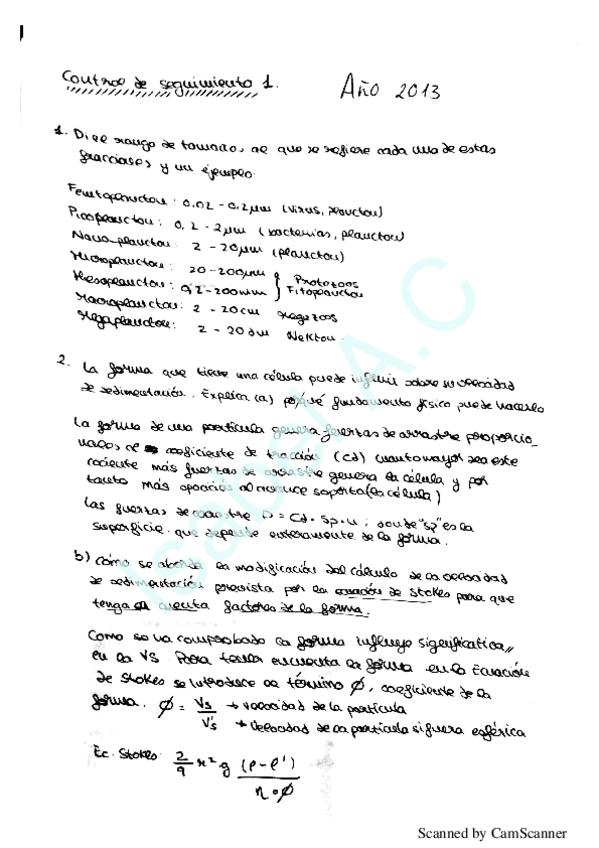 Control de seguimiento 1. Año 2013
1. Di el rango de tamaño, al que se refiere cada una de estas
fracciones y un ejemplo:
Femtoplancton: 0,02 - 0,2 µm (virus, plancton)
Picoplancton: 0,2 - 2 µm (bacterias, plancton)
Nanoplancton: 2 - 20 µm (plancton)
Microplancton: 20-200 µm } Protozoos
Mesoplancton: 0,2-200 mm } Fitoplancton
Macroplancton: 2 - 20 cm
Megaplancton: 2 - 20 dm Nekton
2. La forma que tiene una célula puede influir sobre su velocidad
de sedimentación. Explica (a) por qué fundamento físico puede hacerlo
La forma de una partícula genera fuerzas de arrastre proporcio_
nales al coeficiente de tracción (Cd) cuanto mayor sea este
cociente más fuerzas de arrastre genera la célula y por
tanto más oposición al avance soporta (la célula)
Las fuerzas de arrastre D = Cd · Sp · u ; donde "Sp" es la
superficie que depende enteramente de la forma.
b) Cómo se aborda la modificación del cálculo de la velocidad
de sedimentación prevista por la ecuación de Stokes para que
tenga en cuenta factores de la forma.
Como se va comprobado la forma influye significativa,,
en la VS Para tener en cuenta la forma en la Ecuación
de Stokes se introduce el término Ø, coeficiente de la
forma. Ø = Vs → velocidad de la partícula
V's → velocidad de la partícula si fuera esférica
Ec. Stokes: 2/9 r² g (ρ-ρ') / η · Ø
Isabel A.C
Scanned by CamScanner